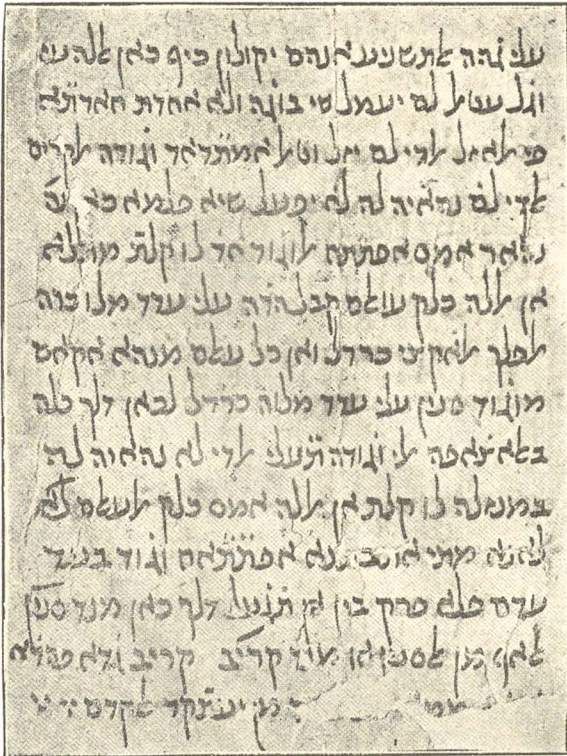 עלי גהה אלתשניע אנהם יקולון כיף כאן אללה עז
וגל עטאל לם יעמל שי בוגה ולא אחדת חאדתא
פי אלאזל אלדי לם יזל וטאל אמתדאד וגודה אלקדים
אלדי לא נהאיה לה לא יפעל שיא פלמא כאן
נהאר אמס אפתתח אלוגוד אד לו קלת מותלא
אן אללה כלק עואלם קבל הדה עלי עדד מלו כרה
אלפלך אלאקצי כרדל ואן כל עאלם מנהא אקאם
מוגוד סנין עלי עדד מלוה כרדל לכאן דלך כלה
באלאצאפה אלי וגודה תעאלי אלדי לא נהאיה לה
במנזלה לו קלת אן אללה אמס כלק אלעאלם
לאנא מתי אפתתאח וגוד בעד
עדם פלא פרק בין אן תגעל דלך כאן מנד
מן אלסנין או מנד קריב קריב גדא פהדא
מן יעתקד אלקדם